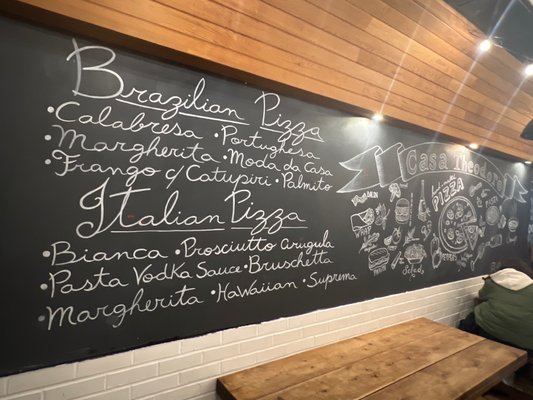 Brazilian Pizza
• Calabresa • Portughesa
• Margherita • Moda da Casa
• Frango c/ Catupiri • Palmito
Italian Pizza
• Bianca • Prosciutto arugula
• Pasta Vodka Sauce • Bruschetta
• Margherita • Hawaiian • Suprema
Casa Theodoro
PIZZA
SALADS